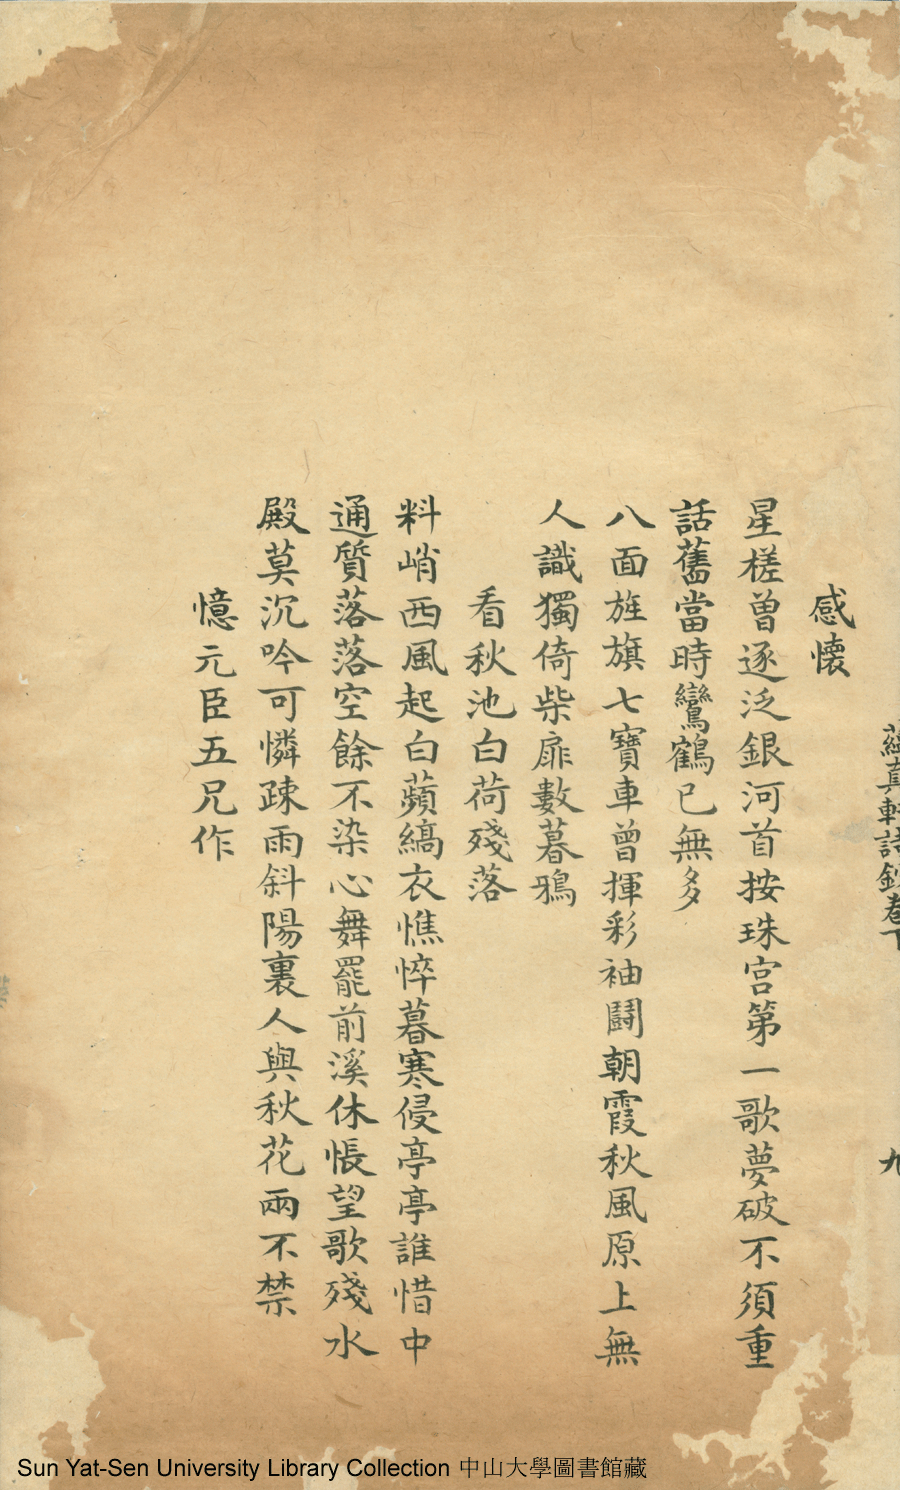 蘊真軒詩鈔卷下
九
感懷
星槎曾逐泛銀河首按珠宮第一歌夢破不須重
話舊當時鸞鶴已無多
八面旌旗七寶車曾揮彩袖鬪朝霞秋風原上無
人識獨倚柴扉數暮鴉
看秋池白荷殘落
料峭西風起白蘋縞衣憔悴暮寒侵亭亭誰惜中
通質落落空餘不染心舞罷前溪休悵望歌殘水
殿莫沉吟可憐疎雨斜陽裏人與秋花兩不禁
憶元臣五兄作
Sun Yat-Sen University Library Collection 中山大學圖書館藏